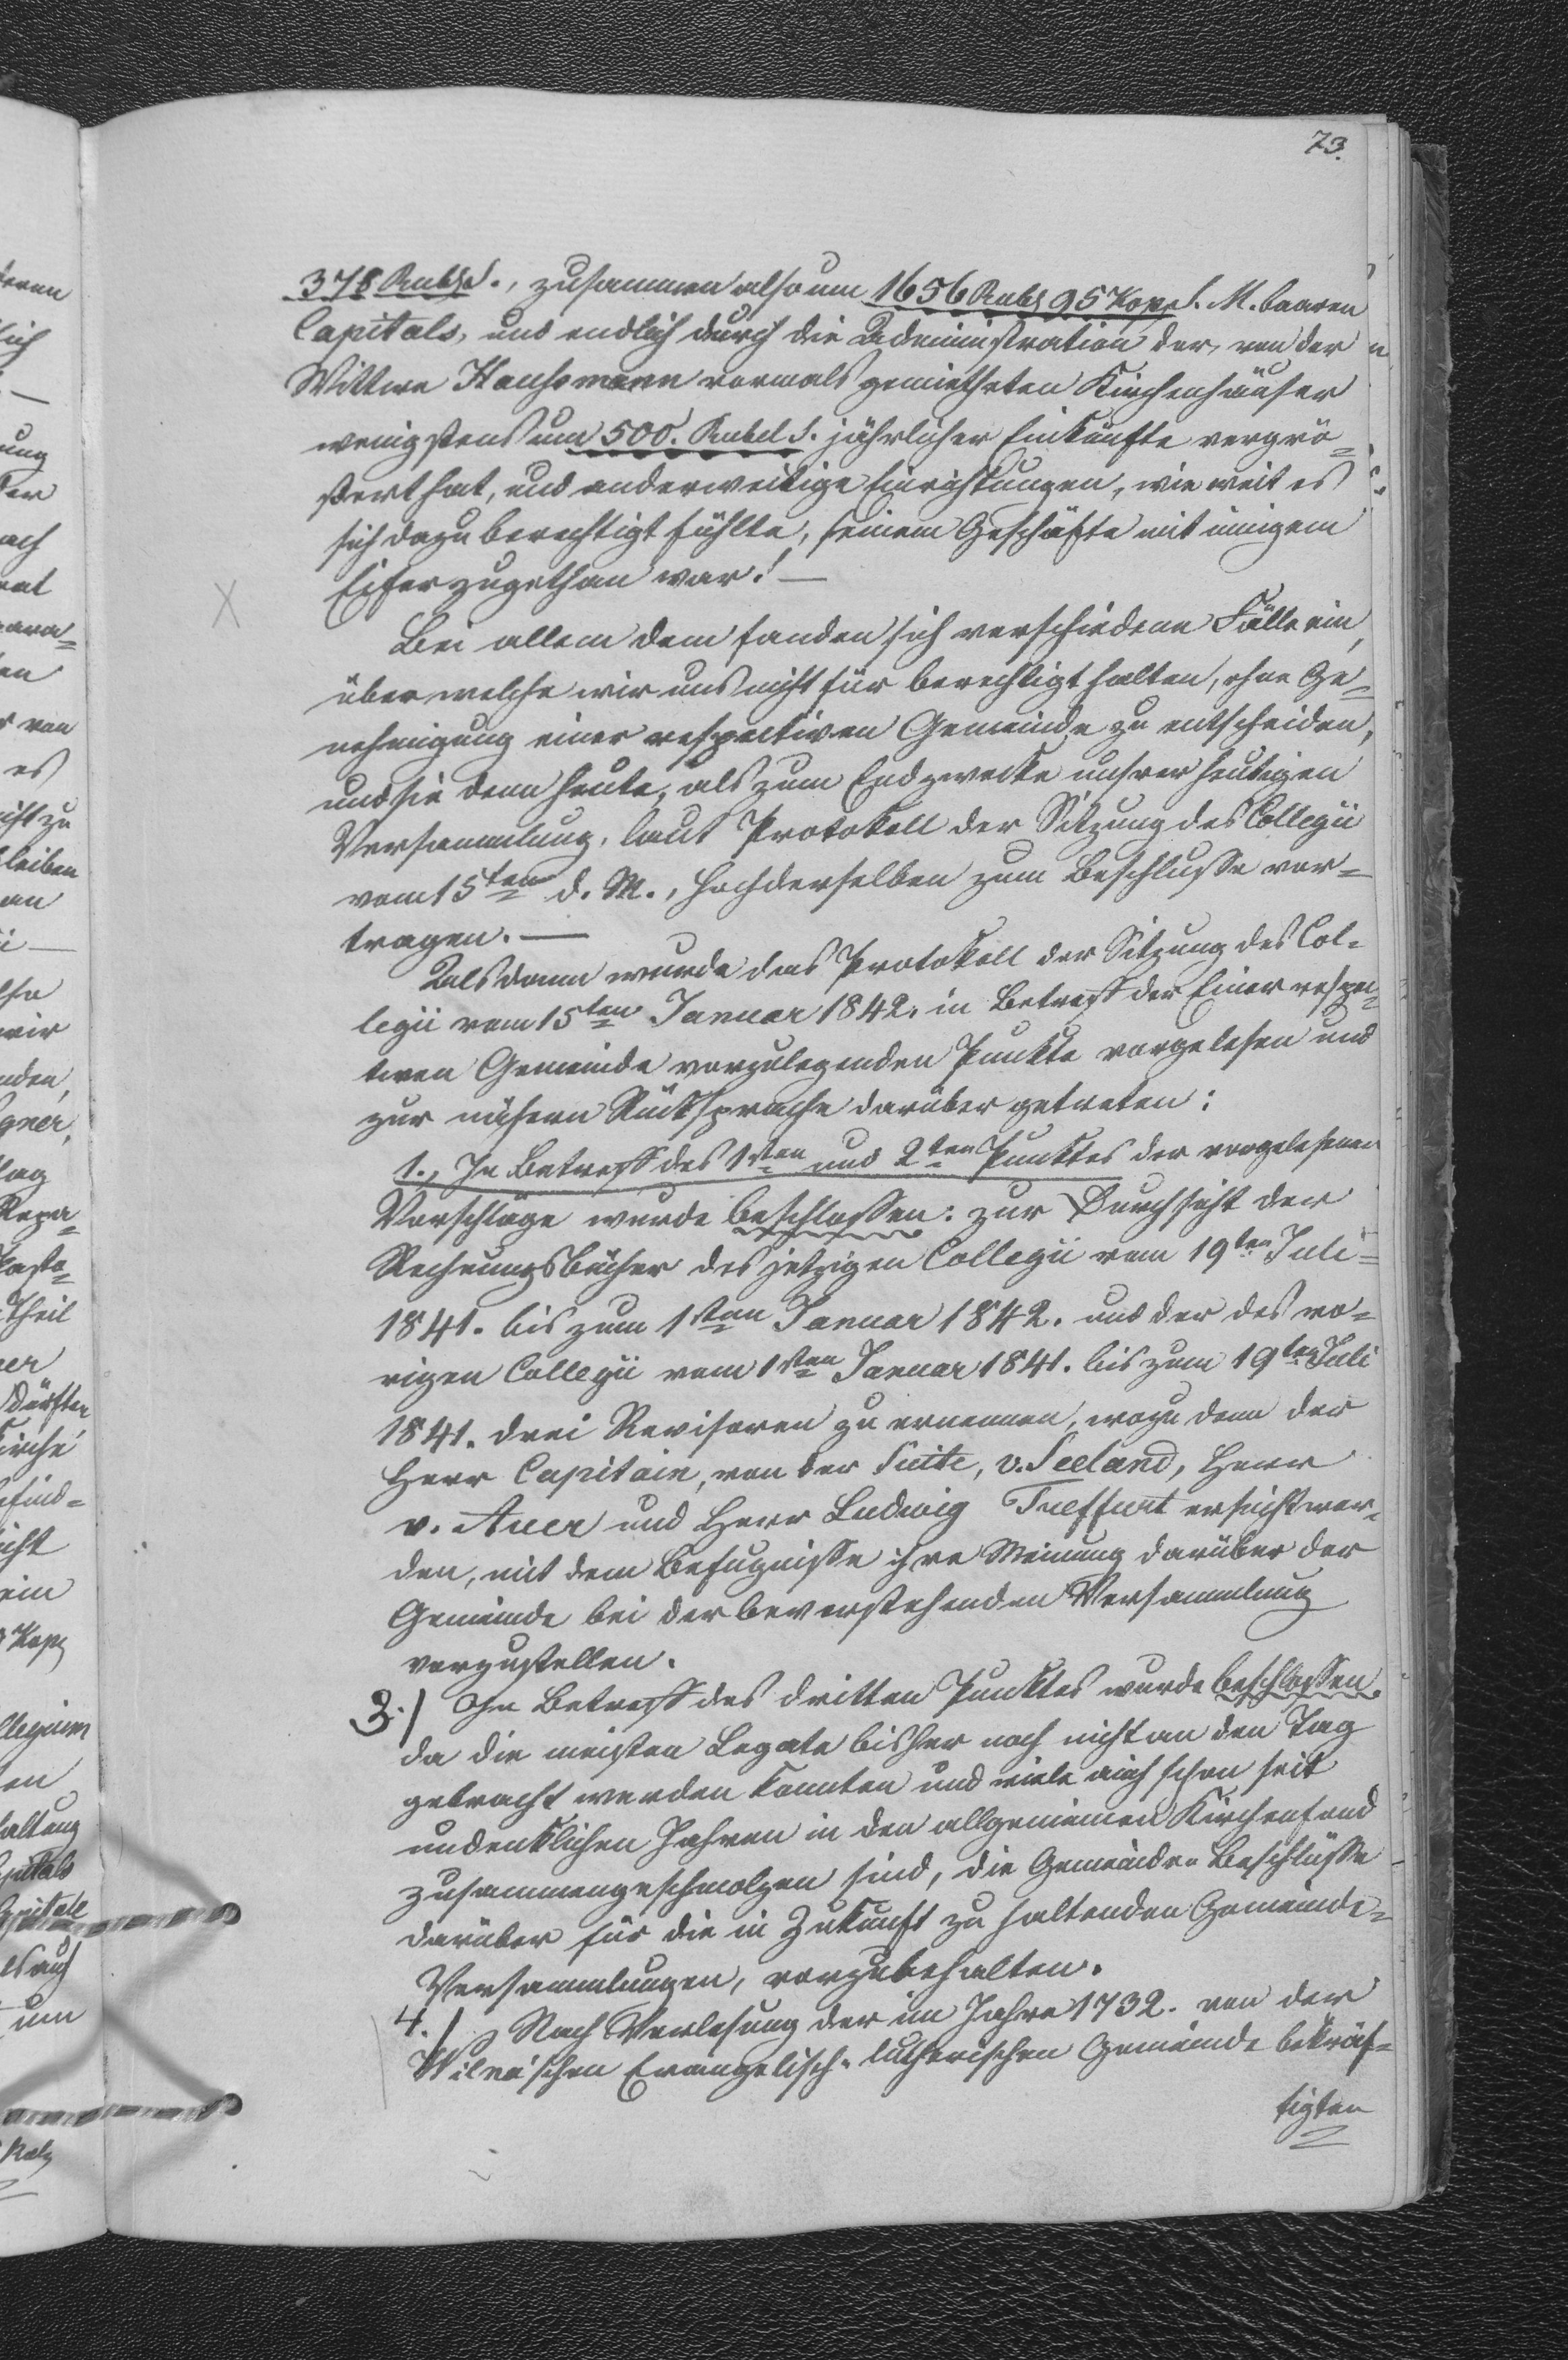 73.
378 Rubl S., zusammen also um 1656 Rubl 95 Kop S. M. baaren
Capitals, und endlich durch die Administration der, von der
Wittwe Hausmann vormals gemietheten Kirchenhäuser
wenigstens um 500. Rubel S. jährlicher Einkünfte vergrö-
ßert hat, und anderweitige Einrichtungen, wie weit es
sich dazu berechtigt fühlte, seinem Geschäfte mit innigem
Eifer zugethan war! —
Bei allem dem fanden sich verschiedene Fälle ein,
über welche wir uns nicht für berechtigt halten, ohne Ge-
nehmigung einer respectiven Gemeinde zu entscheiden,
und sie denn heute, als zum Endzwecke unsrer heutigen
Versammlung, laut Protokoll der Sitzung des Collegii
vom 15ten d. M., Hochderselben zum Beschlusse vor-
tragen. —
Alsdann wurde das Protokoll der Sitzung des Col-
legii vom 15ten Januar 1842. in Betreff der Einer respec-
tiven Gemeinde vorzulegenden Punkte vorgelesen und
zur nähern Rücksprache darüber getreten:
1., In Betreff des 1sten und 2ten Punktes der vorgelesenen
Vorschläge wurde beschlossen: zur Durchsicht der
Rechnungsbücher des jetzigen Collegii vom 19ten Juli
1841. bis zum 1sten Januar 1842. und der des vo-
rigen Collegii vom 1sten Januar 1841. bis zum 19ten Juli
1841. drei Revisoren zu ernennen, wozu denn der
Herr Capitain, von der Suite, v. Seeland, Herr
v. Auer und Herr Ludwig Treffurt ersucht wer-
den, mit dem Befugnisse ihre Meinung darüber der
Gemeinde bei der bevorstehenden Versammlung
vorzustellen.
3./ In Betreff des dritten Punktes wurde beschlossen
da die meisten Legate bisher noch nicht an den Tag
gebracht werden konnten und viele auch schon seit
undenklichen Jahren in den allgemeinen Kirchenfond
zusammengeschmolzen sind, die Gemeinde-Beschlüsse
darüber für die in Zukunft zu haltenden Gemeinde-
Versammlungen, vorzubehalten.
4./ Nach Verlesung der im Jahre 1732. von der
Wilna'schen Evangelisch-lutherischen Gemeinde bekräf-
tigten